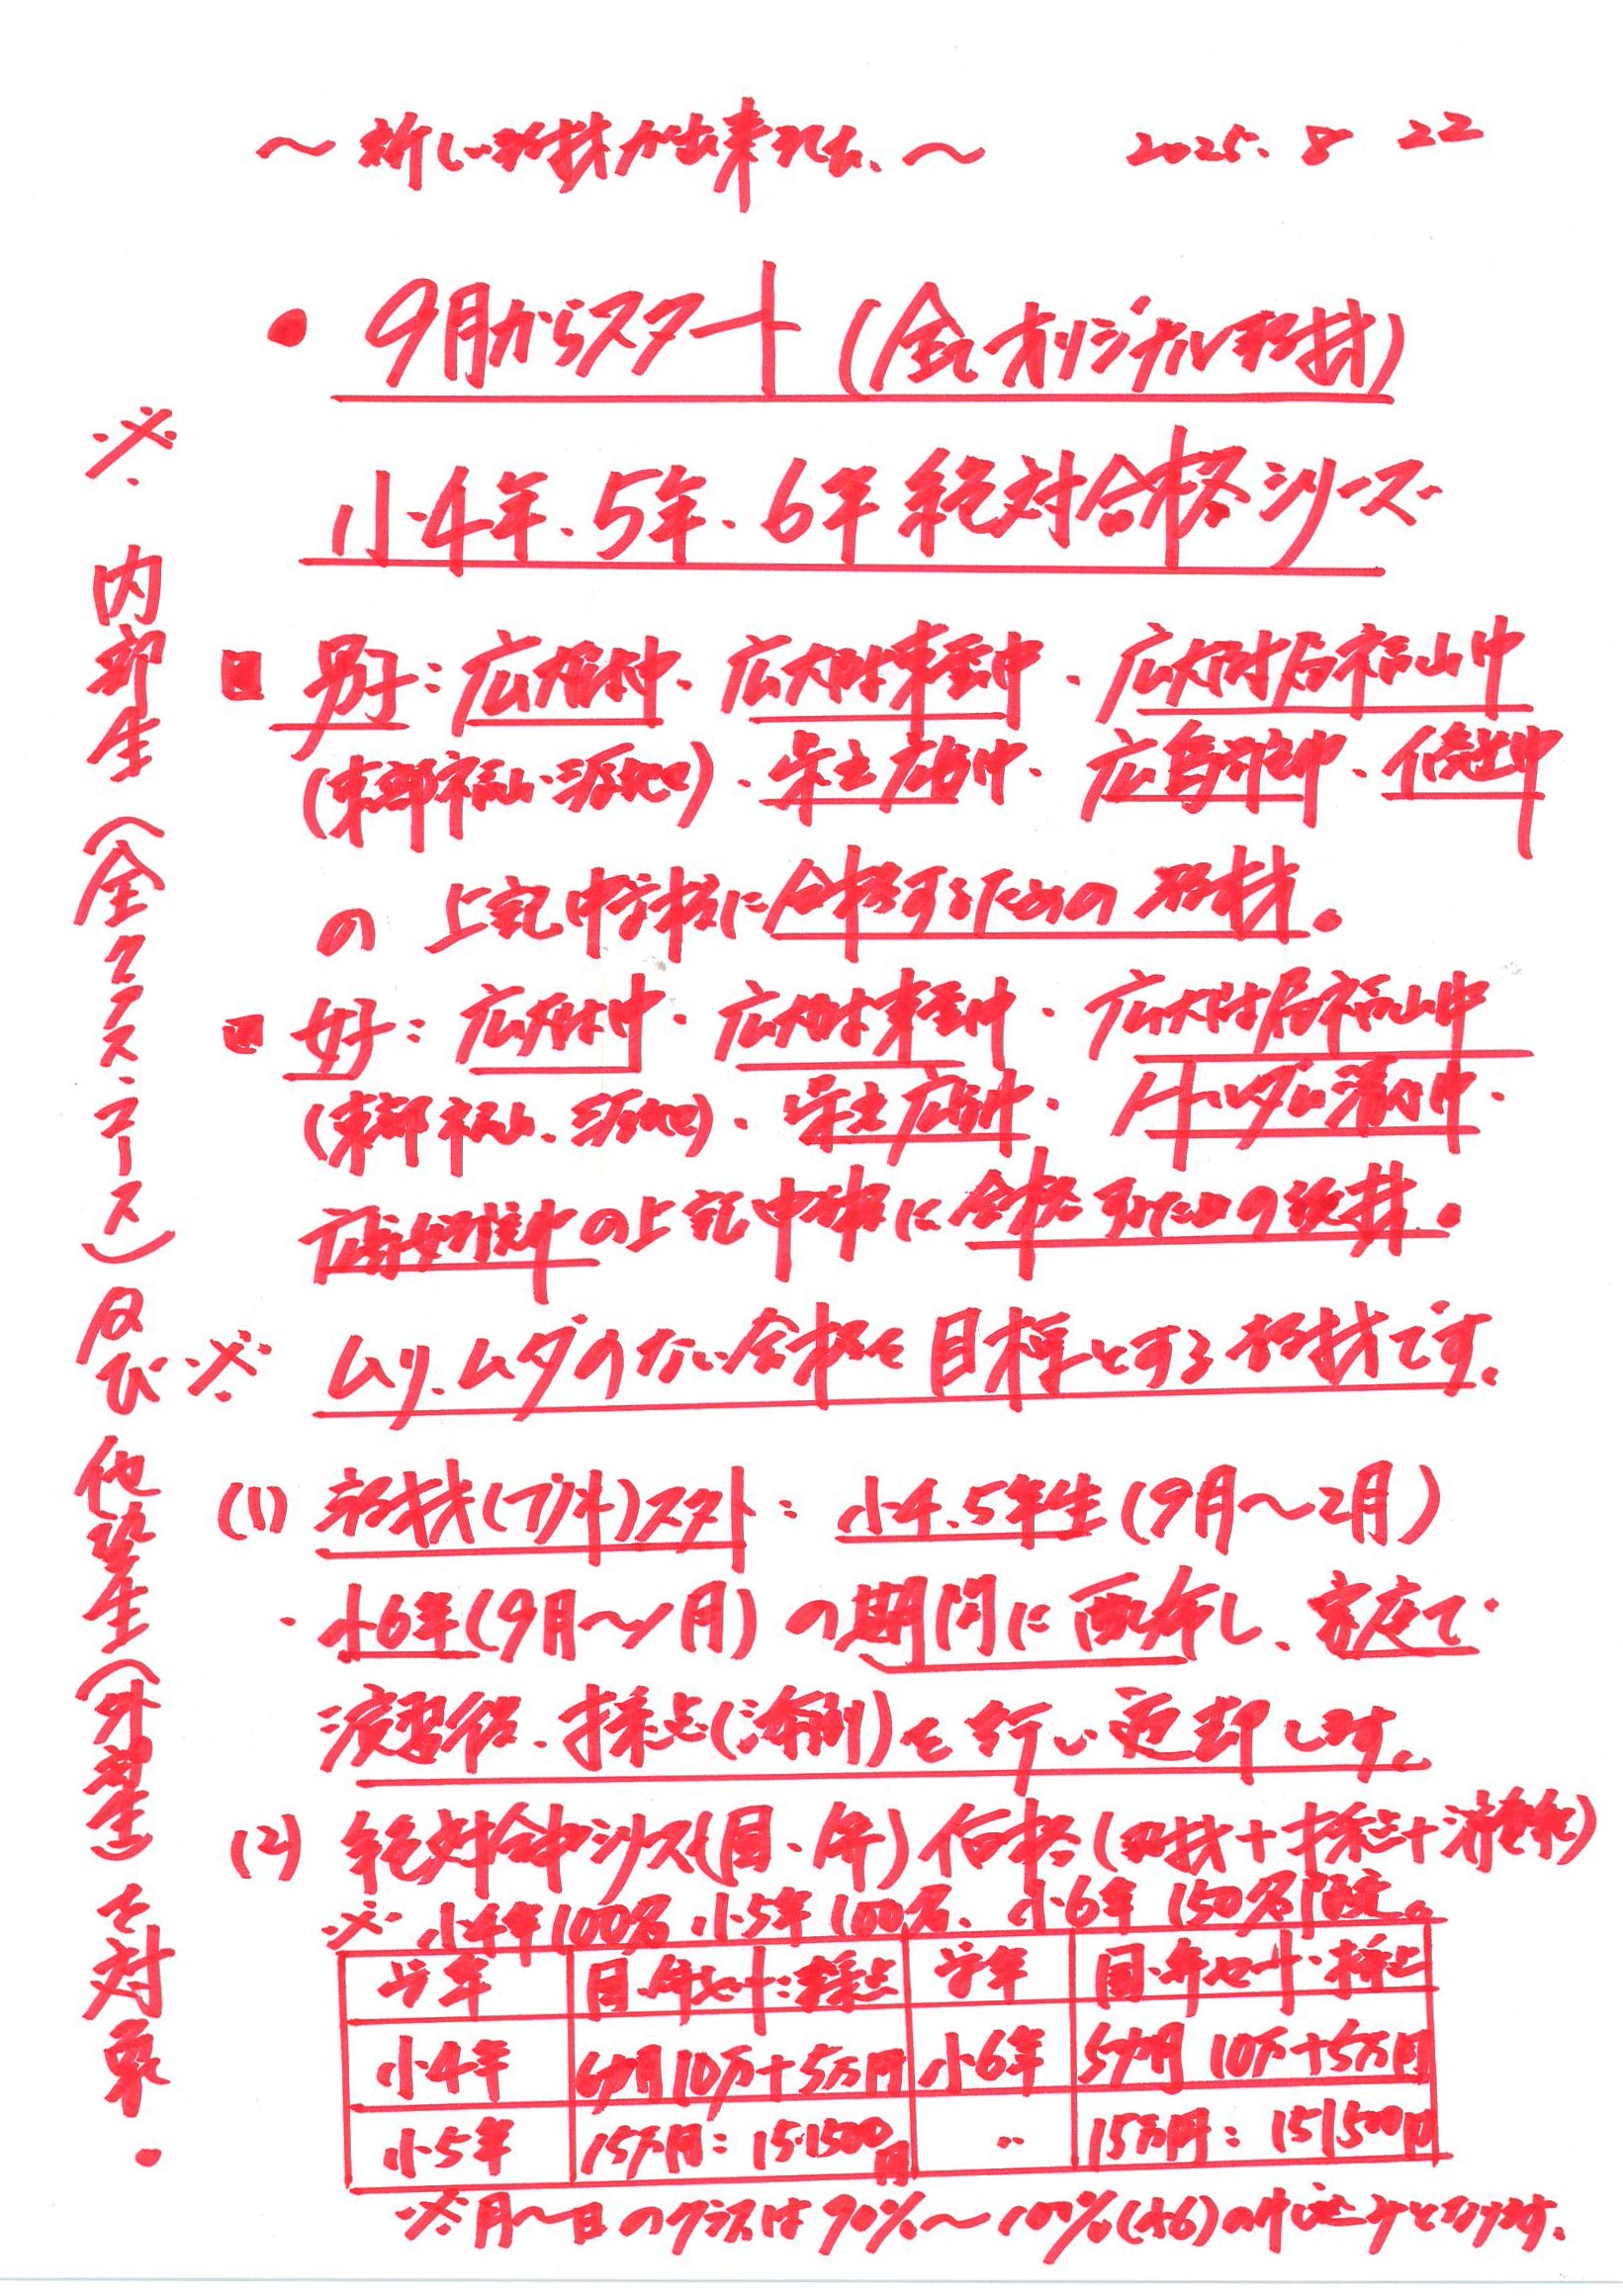 ～新しい教材が出来ました。～ 2025. 8 22
● 9月からスタート (全てオリジナル教材)
小4年、5年、6年 絶対合格シリーズ
男子: 広大附中、広大附東雲中、広大附属福山中
(東部福山、三原地区)、県立広島中、広島学院中、修道中
の 上記中学校に合格するための 教材。
女子: 広大附中、広大附東雲中、広大附属福山中
(東部福山、三原地区)、県立広島中、ノートルダム清心中、
広島女学院中の上記中学校に合格するための教材。
※ ムリ、ムダのない合格を目標とする教材です。
(1) 教材(プリント)スタート: 小4、5年生(9月～2月)
・小6年(9月～1月)の期間に配布し、家庭で
演習後、採点(添削)を行い返却します。
(2) 絶対合格シリーズ(国・算)価格(教材+採点+消費税)
※ 小4年100名、小5年100名、小6年 150名限定。
学年 国・算セット:採点 学年 国・算セット・採点
小4年 6ヶ月10万+5万円 小6年 5ヶ月 10万+5万円
小5年 15万円: 151500円 〃 15万円: 151500円
※月～日のクラスは90%～100%(小6)の申し込みとなります。
※ 内部生(全クラス・コース)及び 他塾生(外部生)を対象。